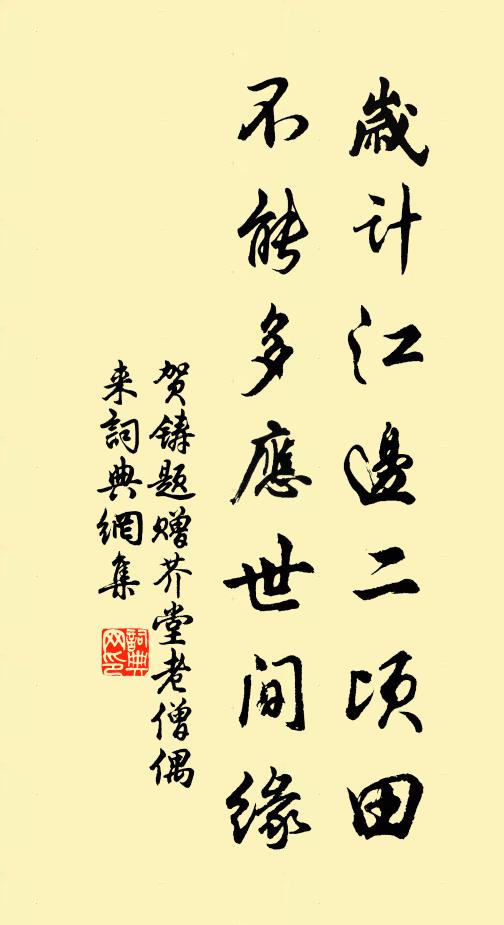 歲計江邊二頃田
不能多應世间緣
贺鑄題赠芥堂老僧偶
来詞典網集
詞典网印